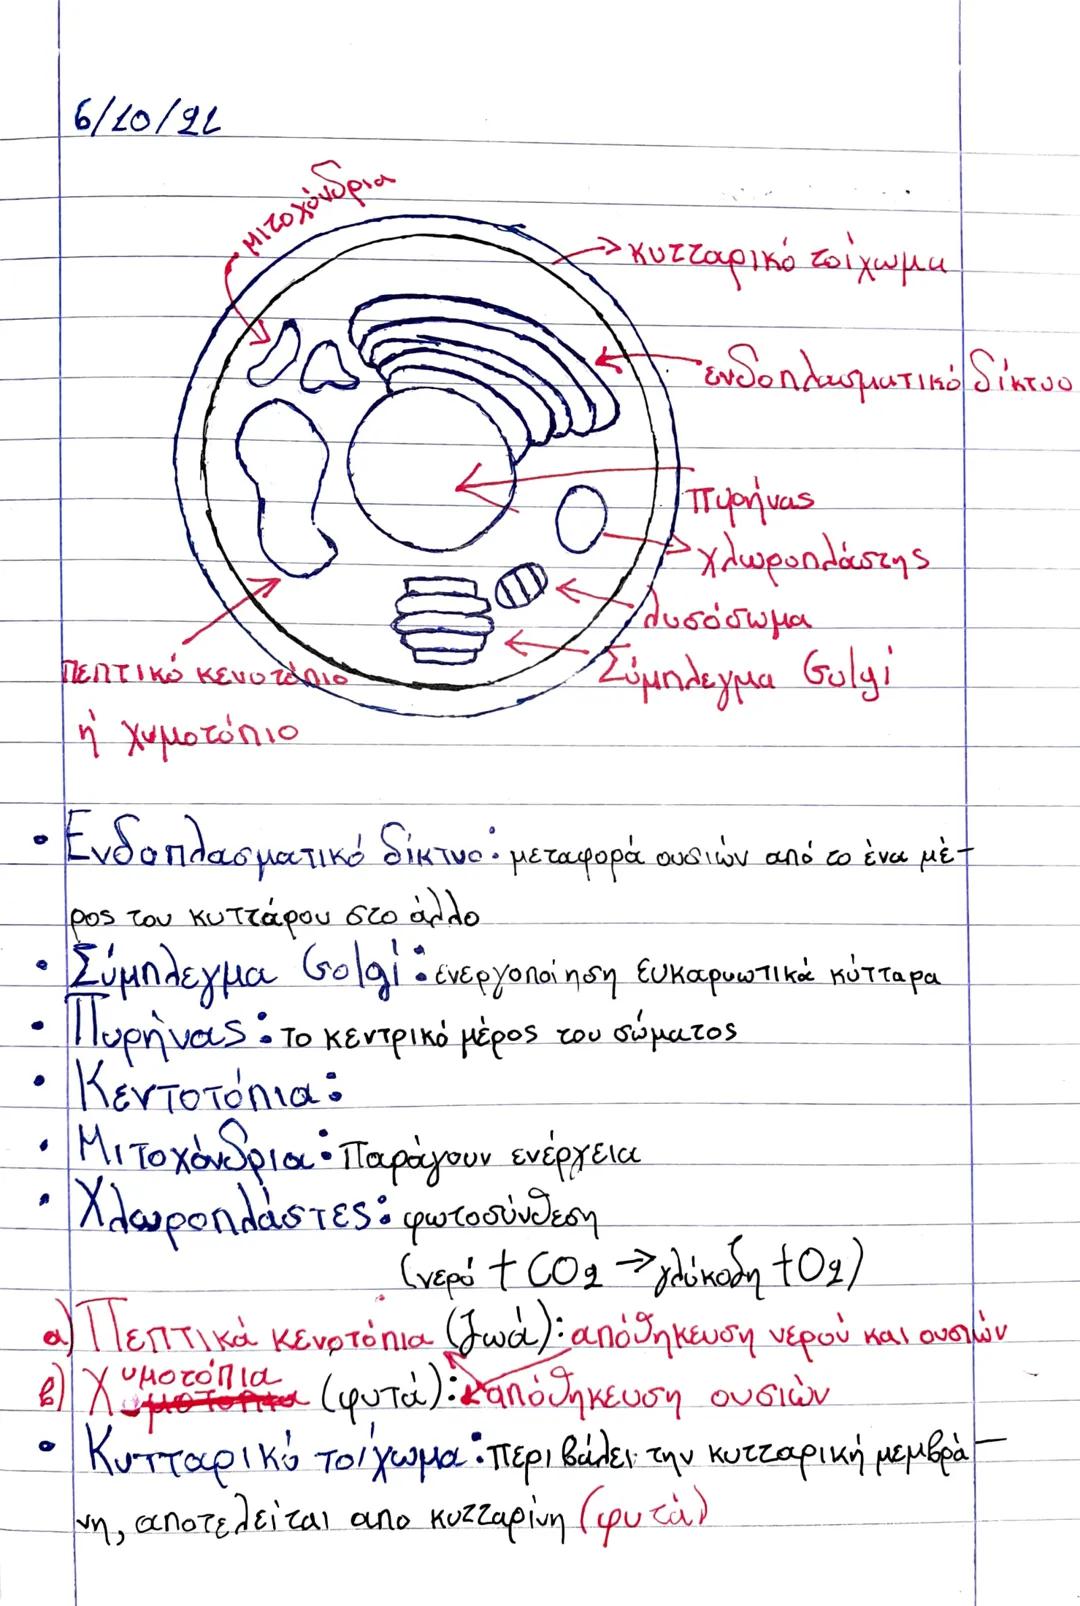 6/10/21
μιτοχόνδρια
κυτταρικό τοίχωμα
ενδοπλασματικό δίκτυο
πυρήνας
χλωροπλάστης
λυσόσωμα
Σύμπλεγμα Golgi
πεπτικό κενοτόπιο
ή χυμοτόπιο
• Ενδοπλασματικό δίκτυο: μεταφορά ουσιών από το ένα μέ-
ρος του κυττάρου στο άλλο
• Σύμπλεγμα Golgi: ενεργοποίηση ευκαρυωτικά κύτταρα
• Πυρήνας: το κεντρικό μέρος του σώματος
• Κεντοτόπια:
• Μιτοχόνδρια: παράγουν ενέργεια
• Χλωροπλάστες: φωτοσύνθεση
(νερό + CO2 → γλύκοζη + O2)
α) Πεπτικά κενοτόπια (ζωά): απόθηκευση νερού και ουσιών
β) Χυμοτόπια (φυτά): απόθηκευση ουσιών
• Κυτταρικό τοίχωμα: περιβάλει την κυτταρική μεμβρά-
νη, αποτελείται απο κυτταρίνη (φυτά)